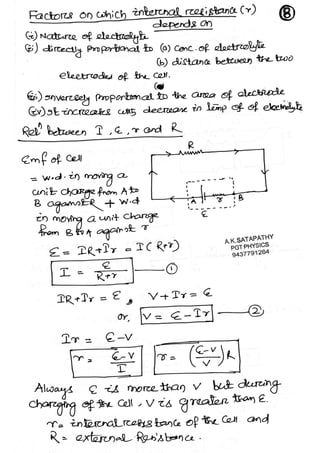 Factors on which internal resistance (r)
depends on
(8)
(i) Nature of electrolyte
(ii) directly proportional to (a) Conc. of electrolyte
(b) distance between the two
electrodes of the cell.
(iii) inversely proportional to the area of electrode
(iv) It increases with decrease in temp of electrolyte
Relⁿ between I, ε, r and R
Emf of cell
= w.d. in moving a
unit charge from A to
B against R + w.d
in moving a unit charge
from B to A against r
R
I
A r B
ε
A.K.SATAPATHY
PGT PHYSICS
9437791264
ε = IR+Ir = I(R+r)
I = ε/(R+r) — (1)
IR+Ir = ε, V+Ir = ε
or, V = ε-Ir — (2)
Ir = ε-V
r = (ε-V)/I r = ((ε-V)/V)R
Always ε is more than V but during
charging of the cell, V is greater than ε.
r = internal resistance of the cell and
R = external Resistance.